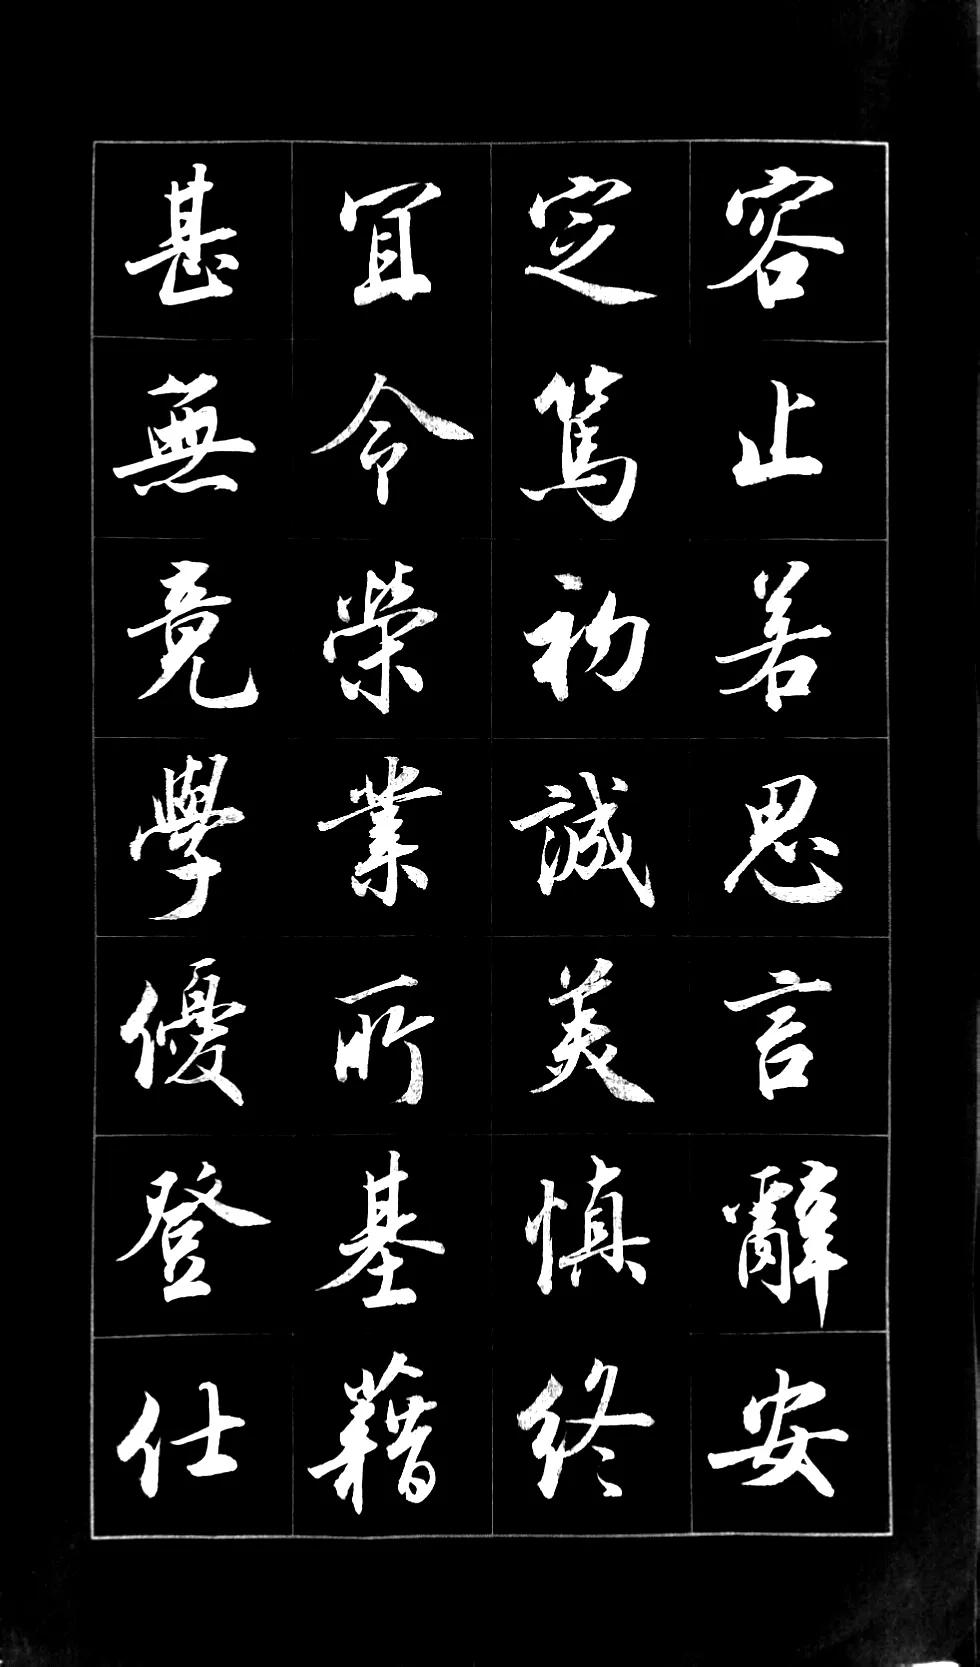 容止若思言辭安
定篤初誠美慎終
宜令榮業所基藉
甚無竟學優登仕